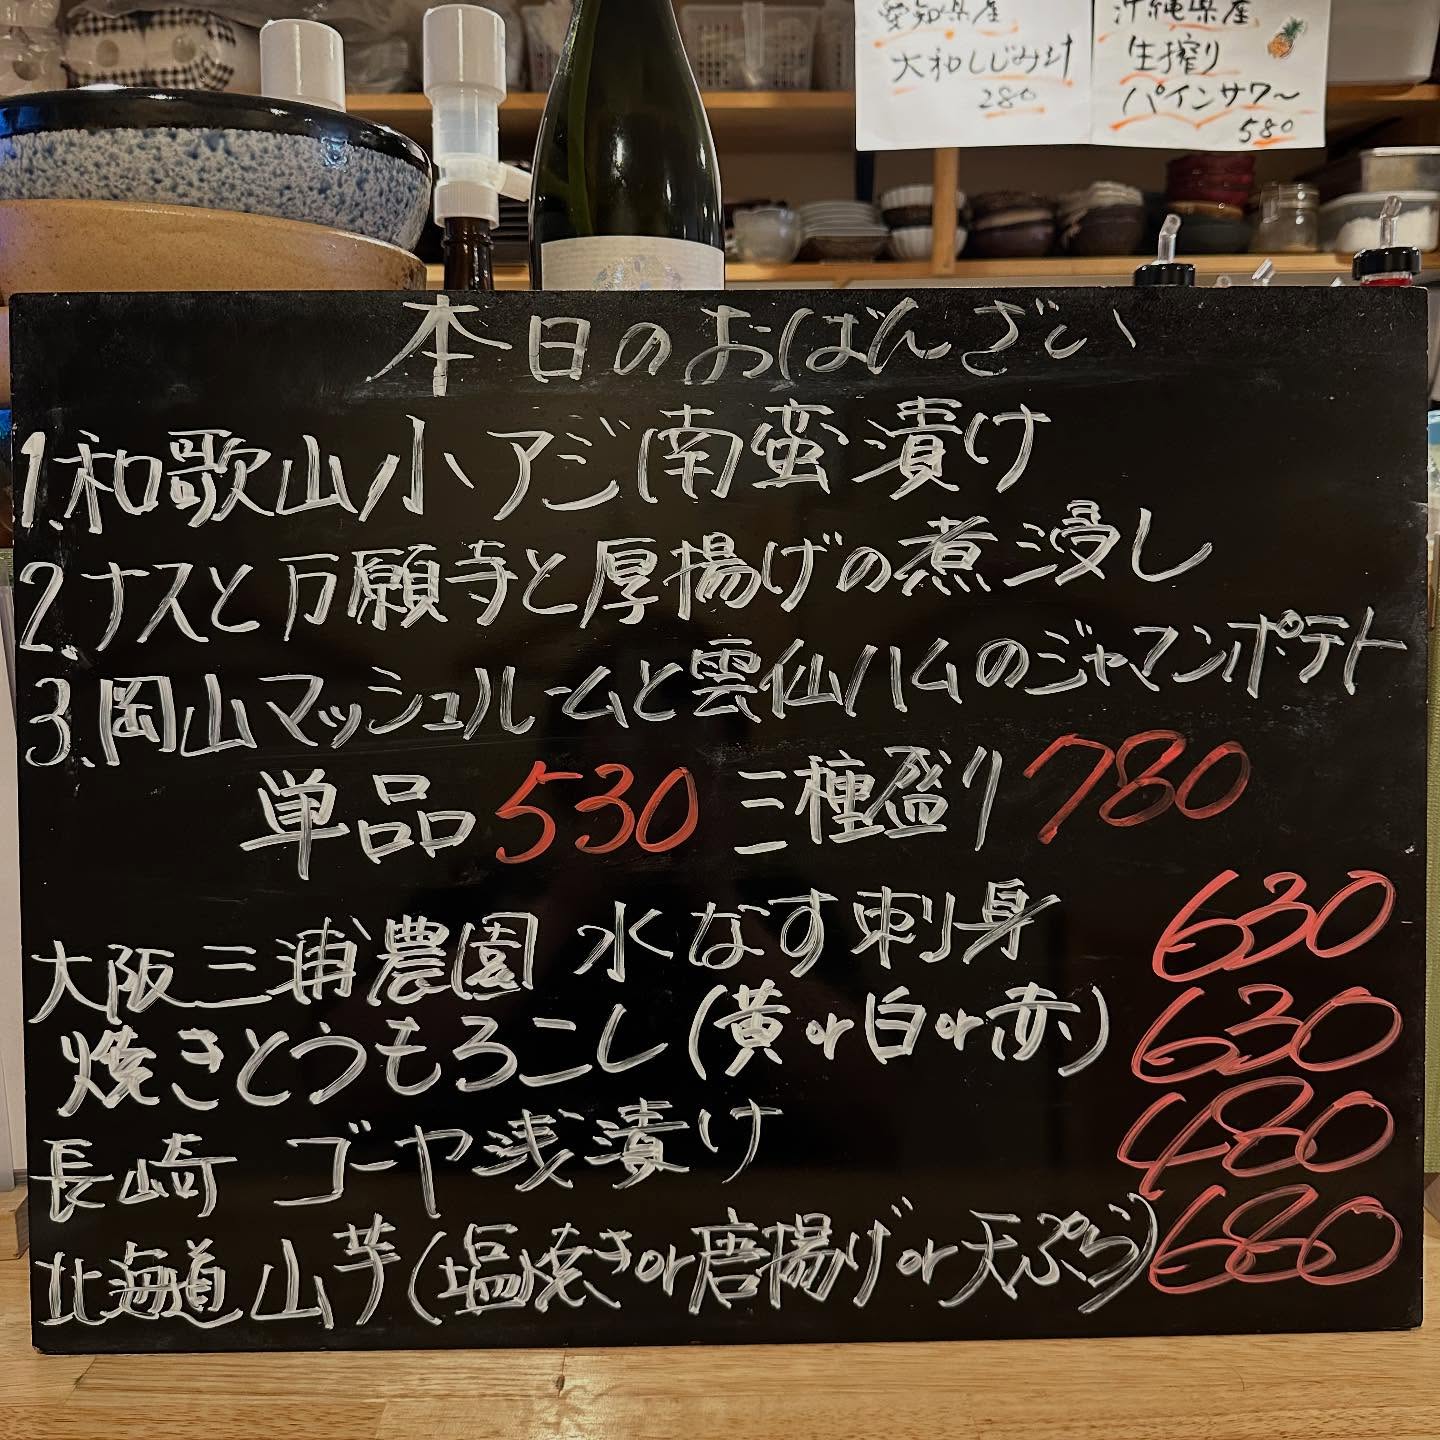 愛知県産
大和しじみ汁
280
沖縄県産
生搾り
パインサワ〜
580
本日のおばんざい
1.和歌山小アジ南蛮漬け
2.ナスと万願寺と厚揚げの煮浸し
3.岡山マッシュルームと雲仙ハムのジャーマンポテト
単品530 三種盛り780
大阪三浦農園 水なす刺身 630
焼きとうもろこし(黄or白or赤) 630
長崎 ゴーヤ浅漬け 480
北海道山芋(塩焼きor唐揚げor天ぷら) 680